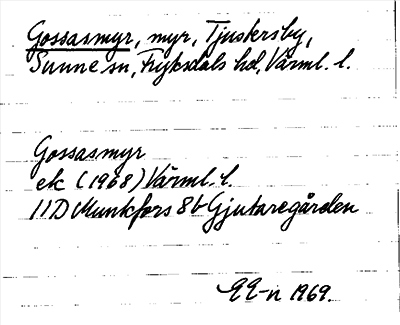 Gossasmyr, myr, Tjustersby,
Sunne sn, Fryksdals hd, Värml. l.
Gossasmyr
ek (1968) Värml. l.
11D Munkfors 8b Gjutaregården
1969.